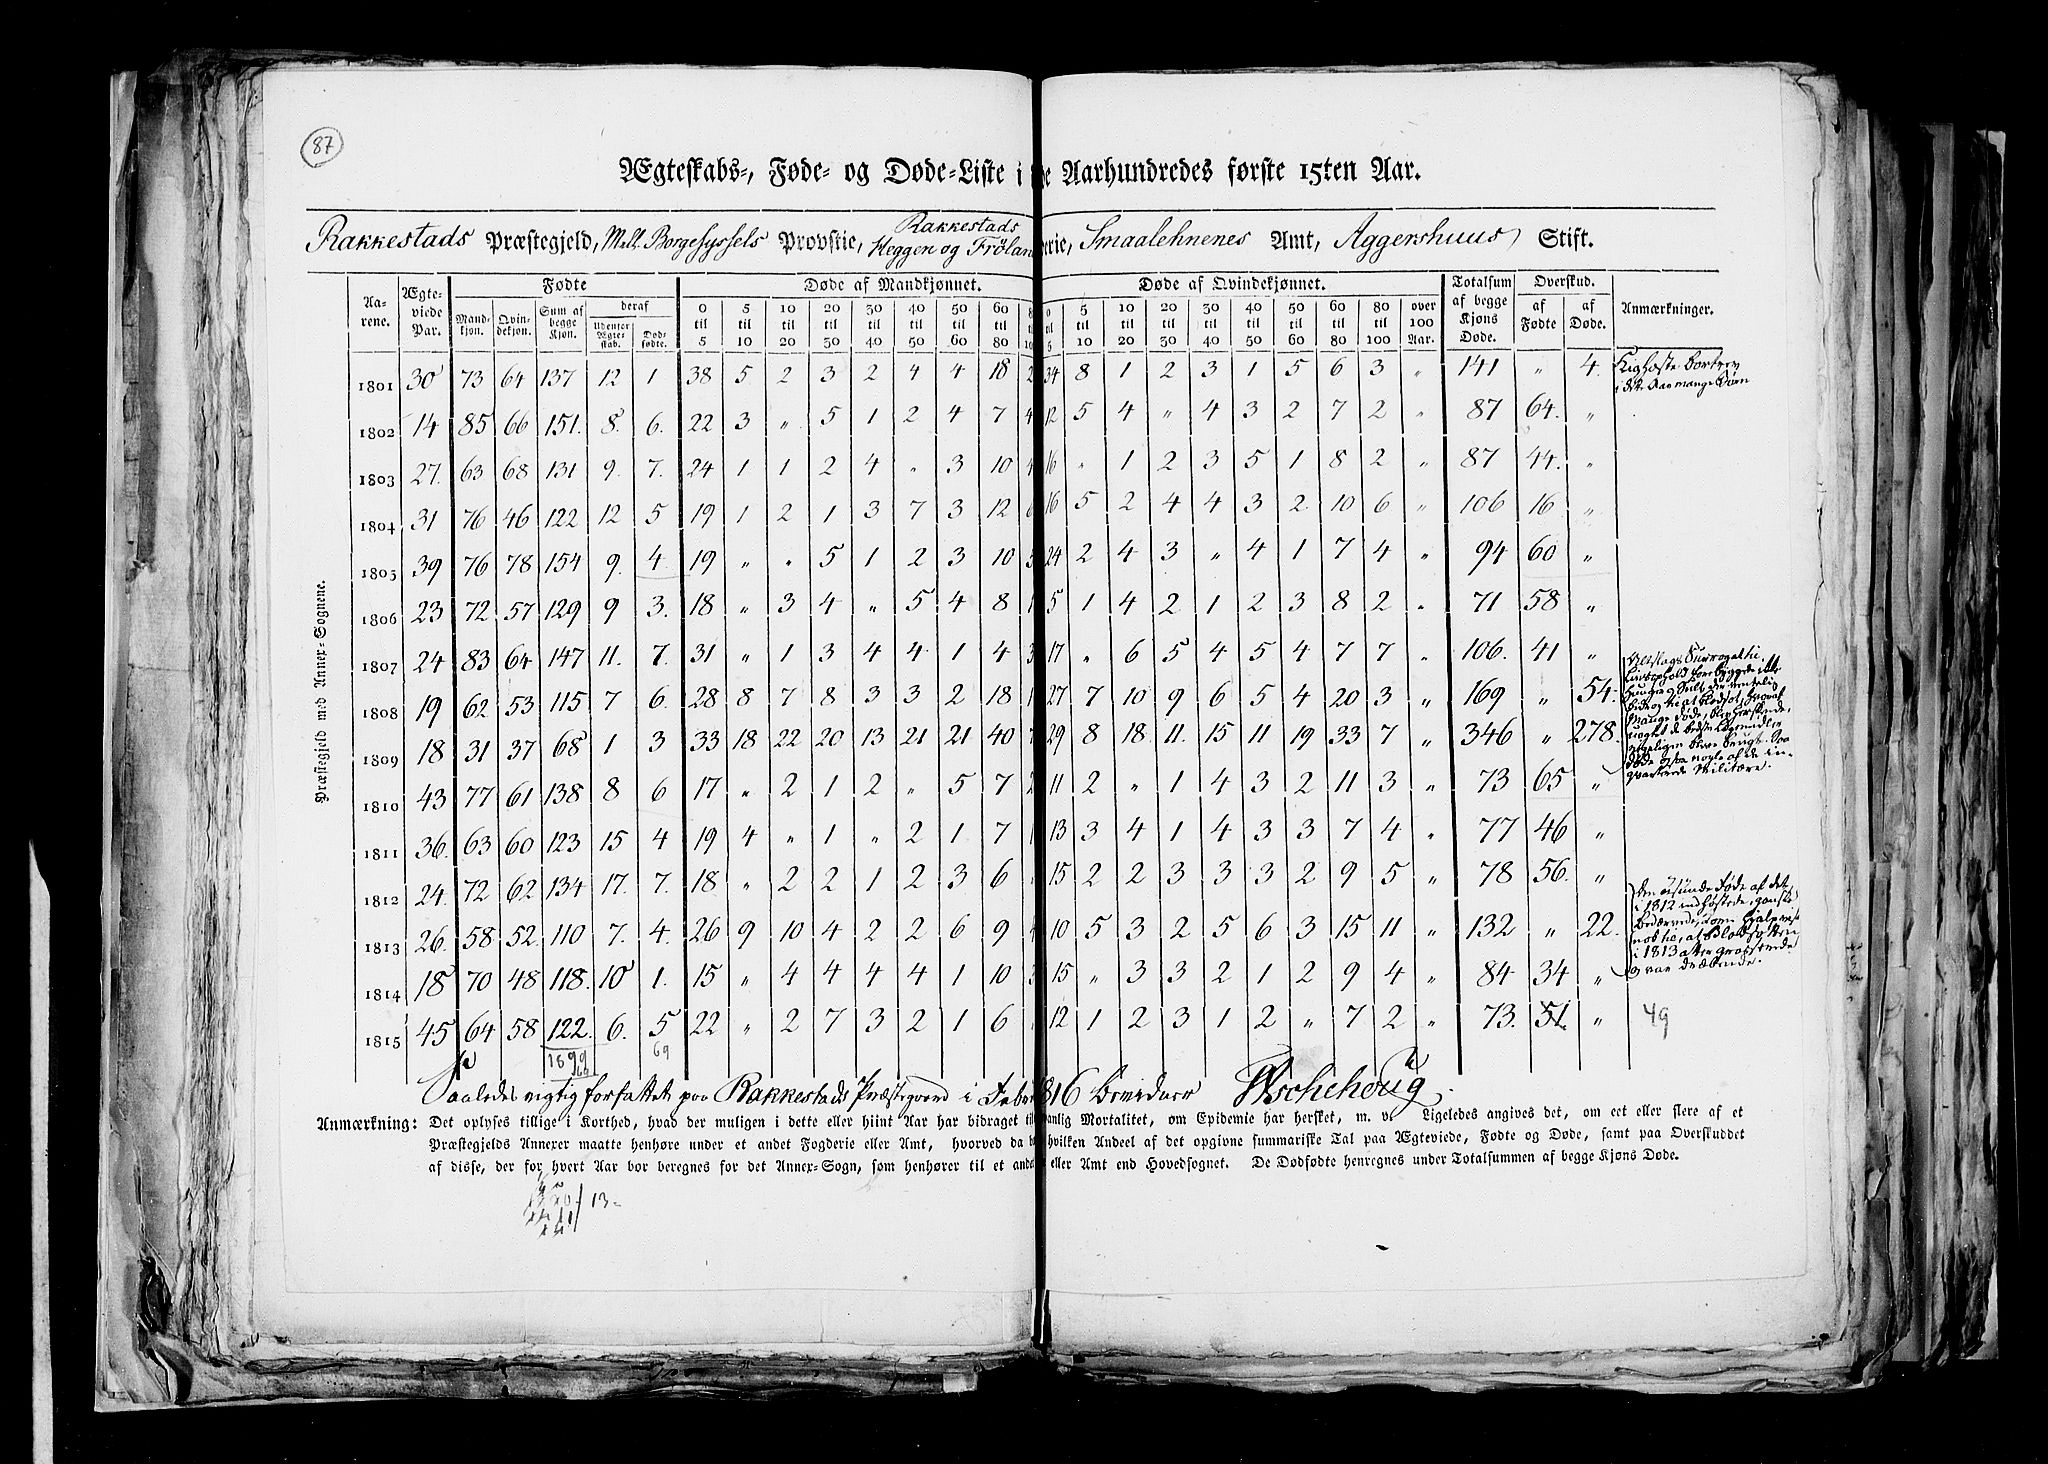 87
Ægteskabs-, Føde- og Døde-Liste i de Aarhundredes første 15ten Aar.
Rakkestads Præstegjeld, Mell. Borgesyssels Provstie, Rakkestads Heggen og Frölan erie, Smaalehnenes Amt, Aggershuus Stift.
Aarene. Ægteviede Par. Fødte Døde af Mandkjønnet. Døde af Qvindekjønnet. Totalsum af begge Kjøns Døde. Overskud. Anmærkninger.
Mandkjøn. Qvindekjøn. Sum af begge Kjøn. deraf Udenfor Ægtestab. Dødfødte. 0 til 5 5 til 10 10 til 20 20 til 30 30 til 40 40 til 50 50 til 60 60 til 80 8 10 0 til 5 5 til 10 10 til 20 20 til 30 30 til 40 40 til 50 50 til 60 60 til 80 80 til 100 over 100 Aar. af Fødte af Døde.
Præstegjeld med Annex-Sognene.
1801 30 73 64 137 12 1 38 5 2 3 2 4 4 18 2 34 8 1 2 3 1 5 6 3 " 141 " 4.
1802 14 85 66 151. 8. 6. 22 3 " 5 1 2 4 7 4 12 5 4 " 4 3 2 7 2 " 87 64. "
1803 27. 63 68 131 9. 7. 24 1 1 2 4 " 3 10 4 16 " 1 2 3 5 1 8 2 " 87 44. "
1804 31 76 46 122 12 5 19 1 2 1 3 7 3 12 6 16 5 2 4 4 3 2 10 6 " 106 16 "
1805 39 76 78 154 9. 4 19 " " 5 1 2 3 10 3 24 2 4 3 " 4 1 7 4 " 94 60 "
1806 23 72 57 129 9 3. 18 " 3 4 " 5 4 8 1 5 1 4 2 1 2 3 8 2 " 71 58 "
1807 24 83 64 147 11. 7. 31 " 1 3 4 4 1 4 3 17 " 6 5 4 5 4 7 7 " 106. 41 "
1808 19 62 53 115 7 6. 28 8 7 8 3 3 2 18 1 27 7 10 9 6 5 4 20 3 " 169 " 54.
1809 18 31 37 68 1 3 33 18 22 20 13 21 21 40 7 29 8 18. 11. 15 11 19 33 7 " 346 " 278.
1810 43 77 61 138 8 6 17 " 2 1 2 " 5 7 2 11 2 " 1 4 3 2 11 3 " 73 65 "
1811 36. 63 60 123 15 4 19 4 " 1 " 2 1 7 1 13 3 4 1 4 3 3 7 4 " 77 46 "
1812 24. 72 62 134 17. 7. 18 " 2 2 1 2 3 6 " 15 2 2 3 3 3 2 9 5 " 78 56. "
1813 26. 58 52. 110 7. 4. 26 9 10 4 2 2 6 9 4 10 5 3 2 5 6 3 15 11 " 132 " 22.
1814 18 70 48 118. 10 1. 15 " 4 4 4 4 1 10 3 15 " 3 3 2 1 2 9 4 " 84 34 "
1815 45 64 58 122. 6. 5 22 " 2 7 3 2 1 6 12 1 2 3 1 2 " 7 2 " 73. 51. " 49
1899 69
i 1812 indhøstede, ganske
i 1813
Saaledes rigtig forfattet paa Rakkestads Præstegaard i Febr 1816 Scheboug
Anmærkning: Det oplyses tillige i Korthed, hvad der muligen i dette eller hiint Aar har bidraget til anlig Mortalitet, om Epidemie har hersket, m. v. Ligeledes angives det, om eet eller flere af et
Præstegjelds Annexer maatte henhøre under et andet Fogderie eller Amt, hvorved da b hvilken Andeel af det opgivne summariske Tal paa Ægteviede, Fødte og Døde, samt paa Overskuddet
af disse, der for hvert Aar bor beregnes for det Annex-Sogn, som henhører til et and eller Amt end Hovedsognet. De Dødfødte henregnes under Totalsummen af begge Kjøns Døde.
13